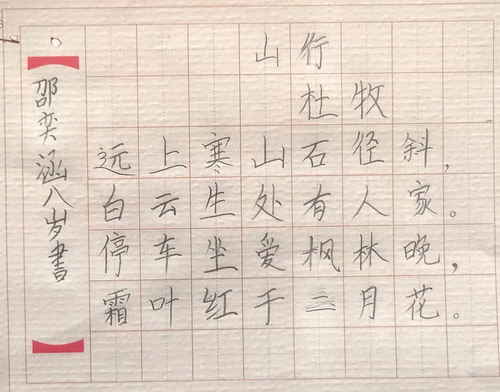 山行
杜牧
远上寒山石径斜，
白云生处有人家。
停车坐爱枫林晚，
霜叶红于二月花。
邵奕涵八岁書